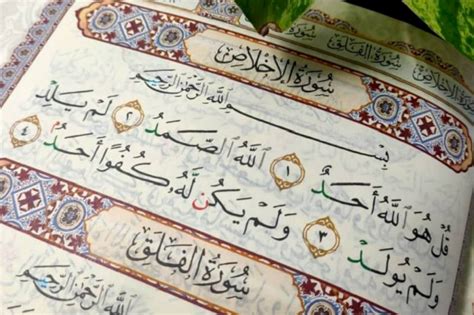 سُورَةُ الإِخْلَاصِ سُورَةُ الفَلَقِ
سُورَةُ الإِخْلَاصِ
بِسْمِ ٱللَّهِ ٱلرَّحْمَٰنِ ٱلرَّحِيمِ
قُلْ هُوَ ٱللَّهُ أَحَدٌ ١ ٱللَّهُ ٱلصَّمَدُ ٢ لَمْ يَلِدْ
وَلَمْ يُولَدْ ٣ وَلَمْ يَكُن لَّهُۥ كُفُوًا أَحَدٌۢ ٤
سُورَةُ الفَلَقِ
ٱللَّهِ ٱلرَّحْمَٰنِ ٱلرَّحِيمِ